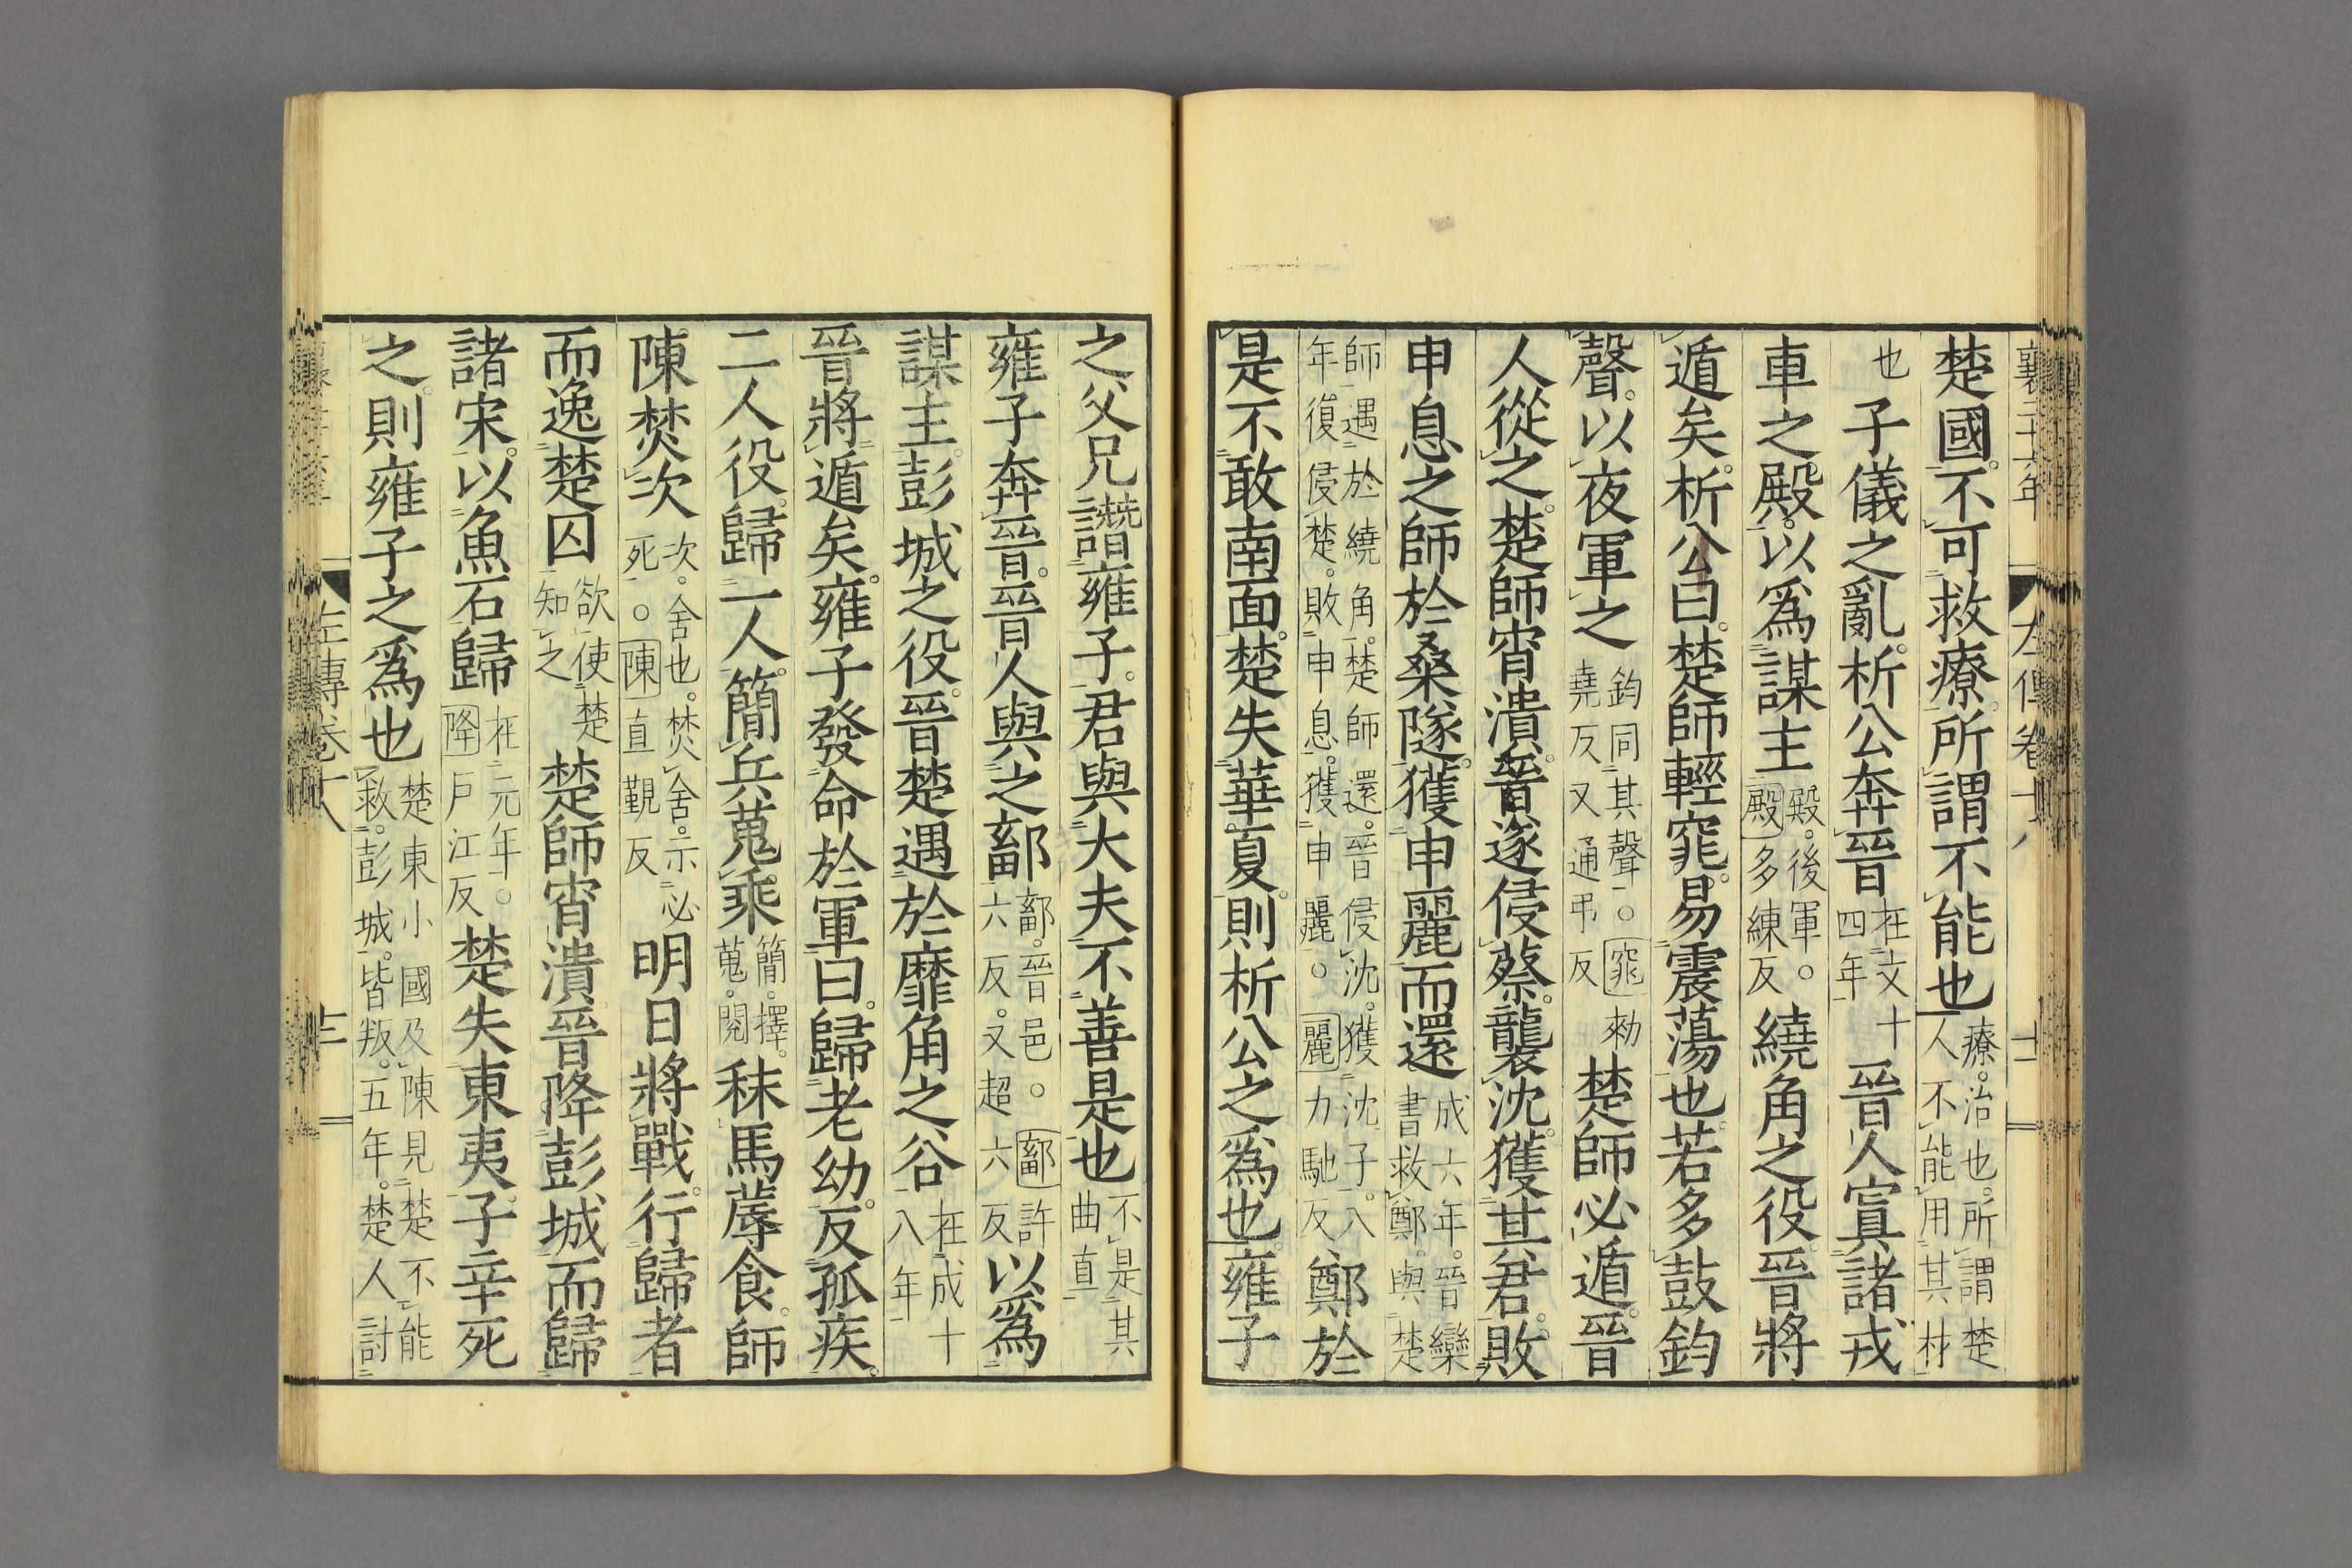 襄二十六年 左傳卷十八 十二
楚國不可救療所謂不能也療治也所謂楚人不能用其材
也子儀之亂析公奔晉在文十四年晉人寘諸戎
車之殿以爲謀主殿後軍○殿多練反繞角之役晉將
遁矣析公曰楚師輕窕易震蕩也若多鼓鈞
聲以夜軍之鈞同其聲○窕勑堯反又通弔反楚師必遁晉
人從之楚師宵潰晉遂侵蔡襲沈獲其君敗
申息之師於桑隧獲申麗而還成六年晉欒書救鄭與楚
師遇於繞角楚師還晉侵沈獲沈子八年復侵楚敗申息獲申麗○麗力馳反鄭於
是不敢南面楚失華夏則析公之爲也雍子
之父兄譖雍子君與大夫不善是也不是其曲直
雍子奔晉晉人與之鄐鄐晉邑○鄐許六反又超六反以爲
謀主彭城之役晉楚遇於靡角之谷在成十八年
晉將遁矣雍子發命於軍曰歸老幼反孤疾
二人役歸一人簡兵蒐乘簡擇蒐閱秣馬蓐食師
陳焚次次舍也焚舍示必死○陳直覲反明日將戰行歸者
而逸楚囚欲使楚知之楚師宵潰晉降彭城而歸
諸宋以魚石歸在元年○降戶江反楚失東夷子辛死
之則雍子之爲也楚東小國及陳見楚不能救彭城皆叛五年楚人討
左傳卷十八